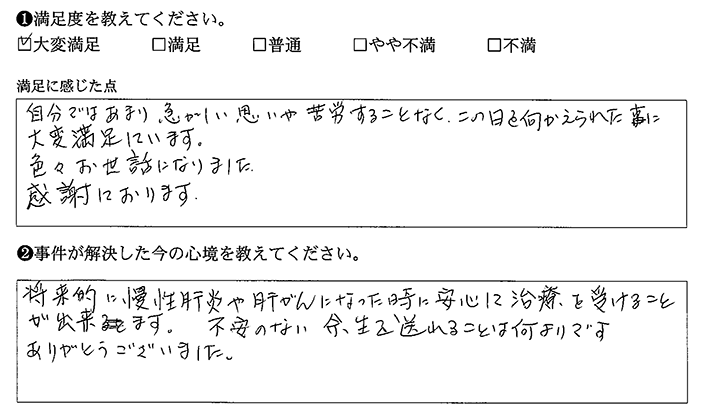 ❶満足度を教えてください。
☑大変満足 □満足 □普通 □やや不満 □不満
満足に感じた点
自分ではあまり、急がしい思いや苦労することなく、この日を向かえられた事に
大変満足しています。
色々お世話になりました
感謝しております。
❷事件が解決した今の心境を教えてください。
将来的に慢性肝炎や肝がんになった時に安心して治療を受けること
が出来ます。 不安のない余生を送れることは何よりです
ありがとうございました。